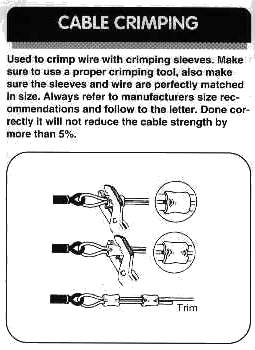 CABLE CRIMPING
Used to crimp wire with crimping sleeves. Make
sure to use a proper crimping tool, also make
sure the sleeves and wire are perfectly matched
in size. Always refer to manufacturers size rec-
ommendations and follow to the letter. Done cor-
rectly it will not reduce the cable strength by
more than 5%.
Trim